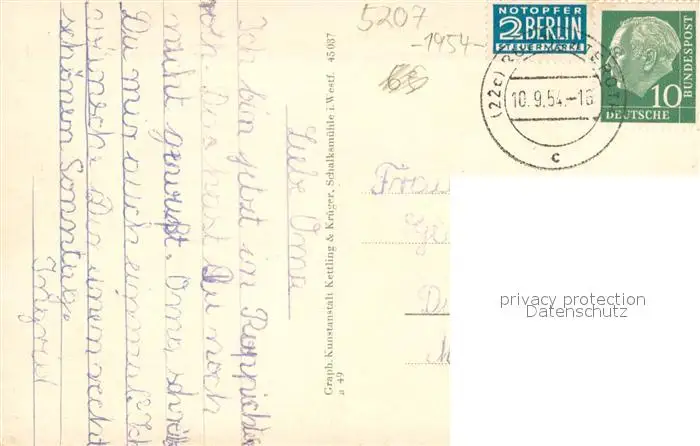 Liebe Oma
Ich bin jetzt in Ruppichte
roth. Das hast Du noch
nicht gewußt. Oma, schreib
Du mir auch einmal. Ich
wünsche Dir einen recht
schönen Sonntag.
Ingrid
Graph. Kunstanstalt Kettling & Krüger, Schalksmühle i. Westf. 45037
a 49
5207
-1954-
NOTOPFER
2 BERLIN
STEUERMARKE
DEUTSCHE
BUNDESPOST
10
(22c)
10.9.54.-16
c
Frau
privacy protection
Datenschutz